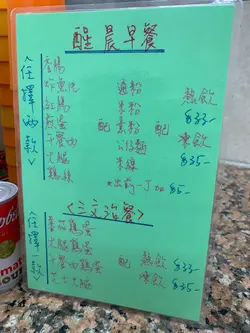 醒晨早餐
<任擇两款>
香腸 通粉 熱飲 $33-
炸魚
紅腸 米粉
煎蛋 配 意粉 配 凍飲
午餐肉 公仔麵 $35-
火腿 米線
雞絲 *出前一丁加$5-
<三文治餐>
<任擇一款>
蕃茄雞蛋
火腿雞蛋 熱飲 $33-
午餐肉雞蛋 配 凍飲 $35-
芝士火腿